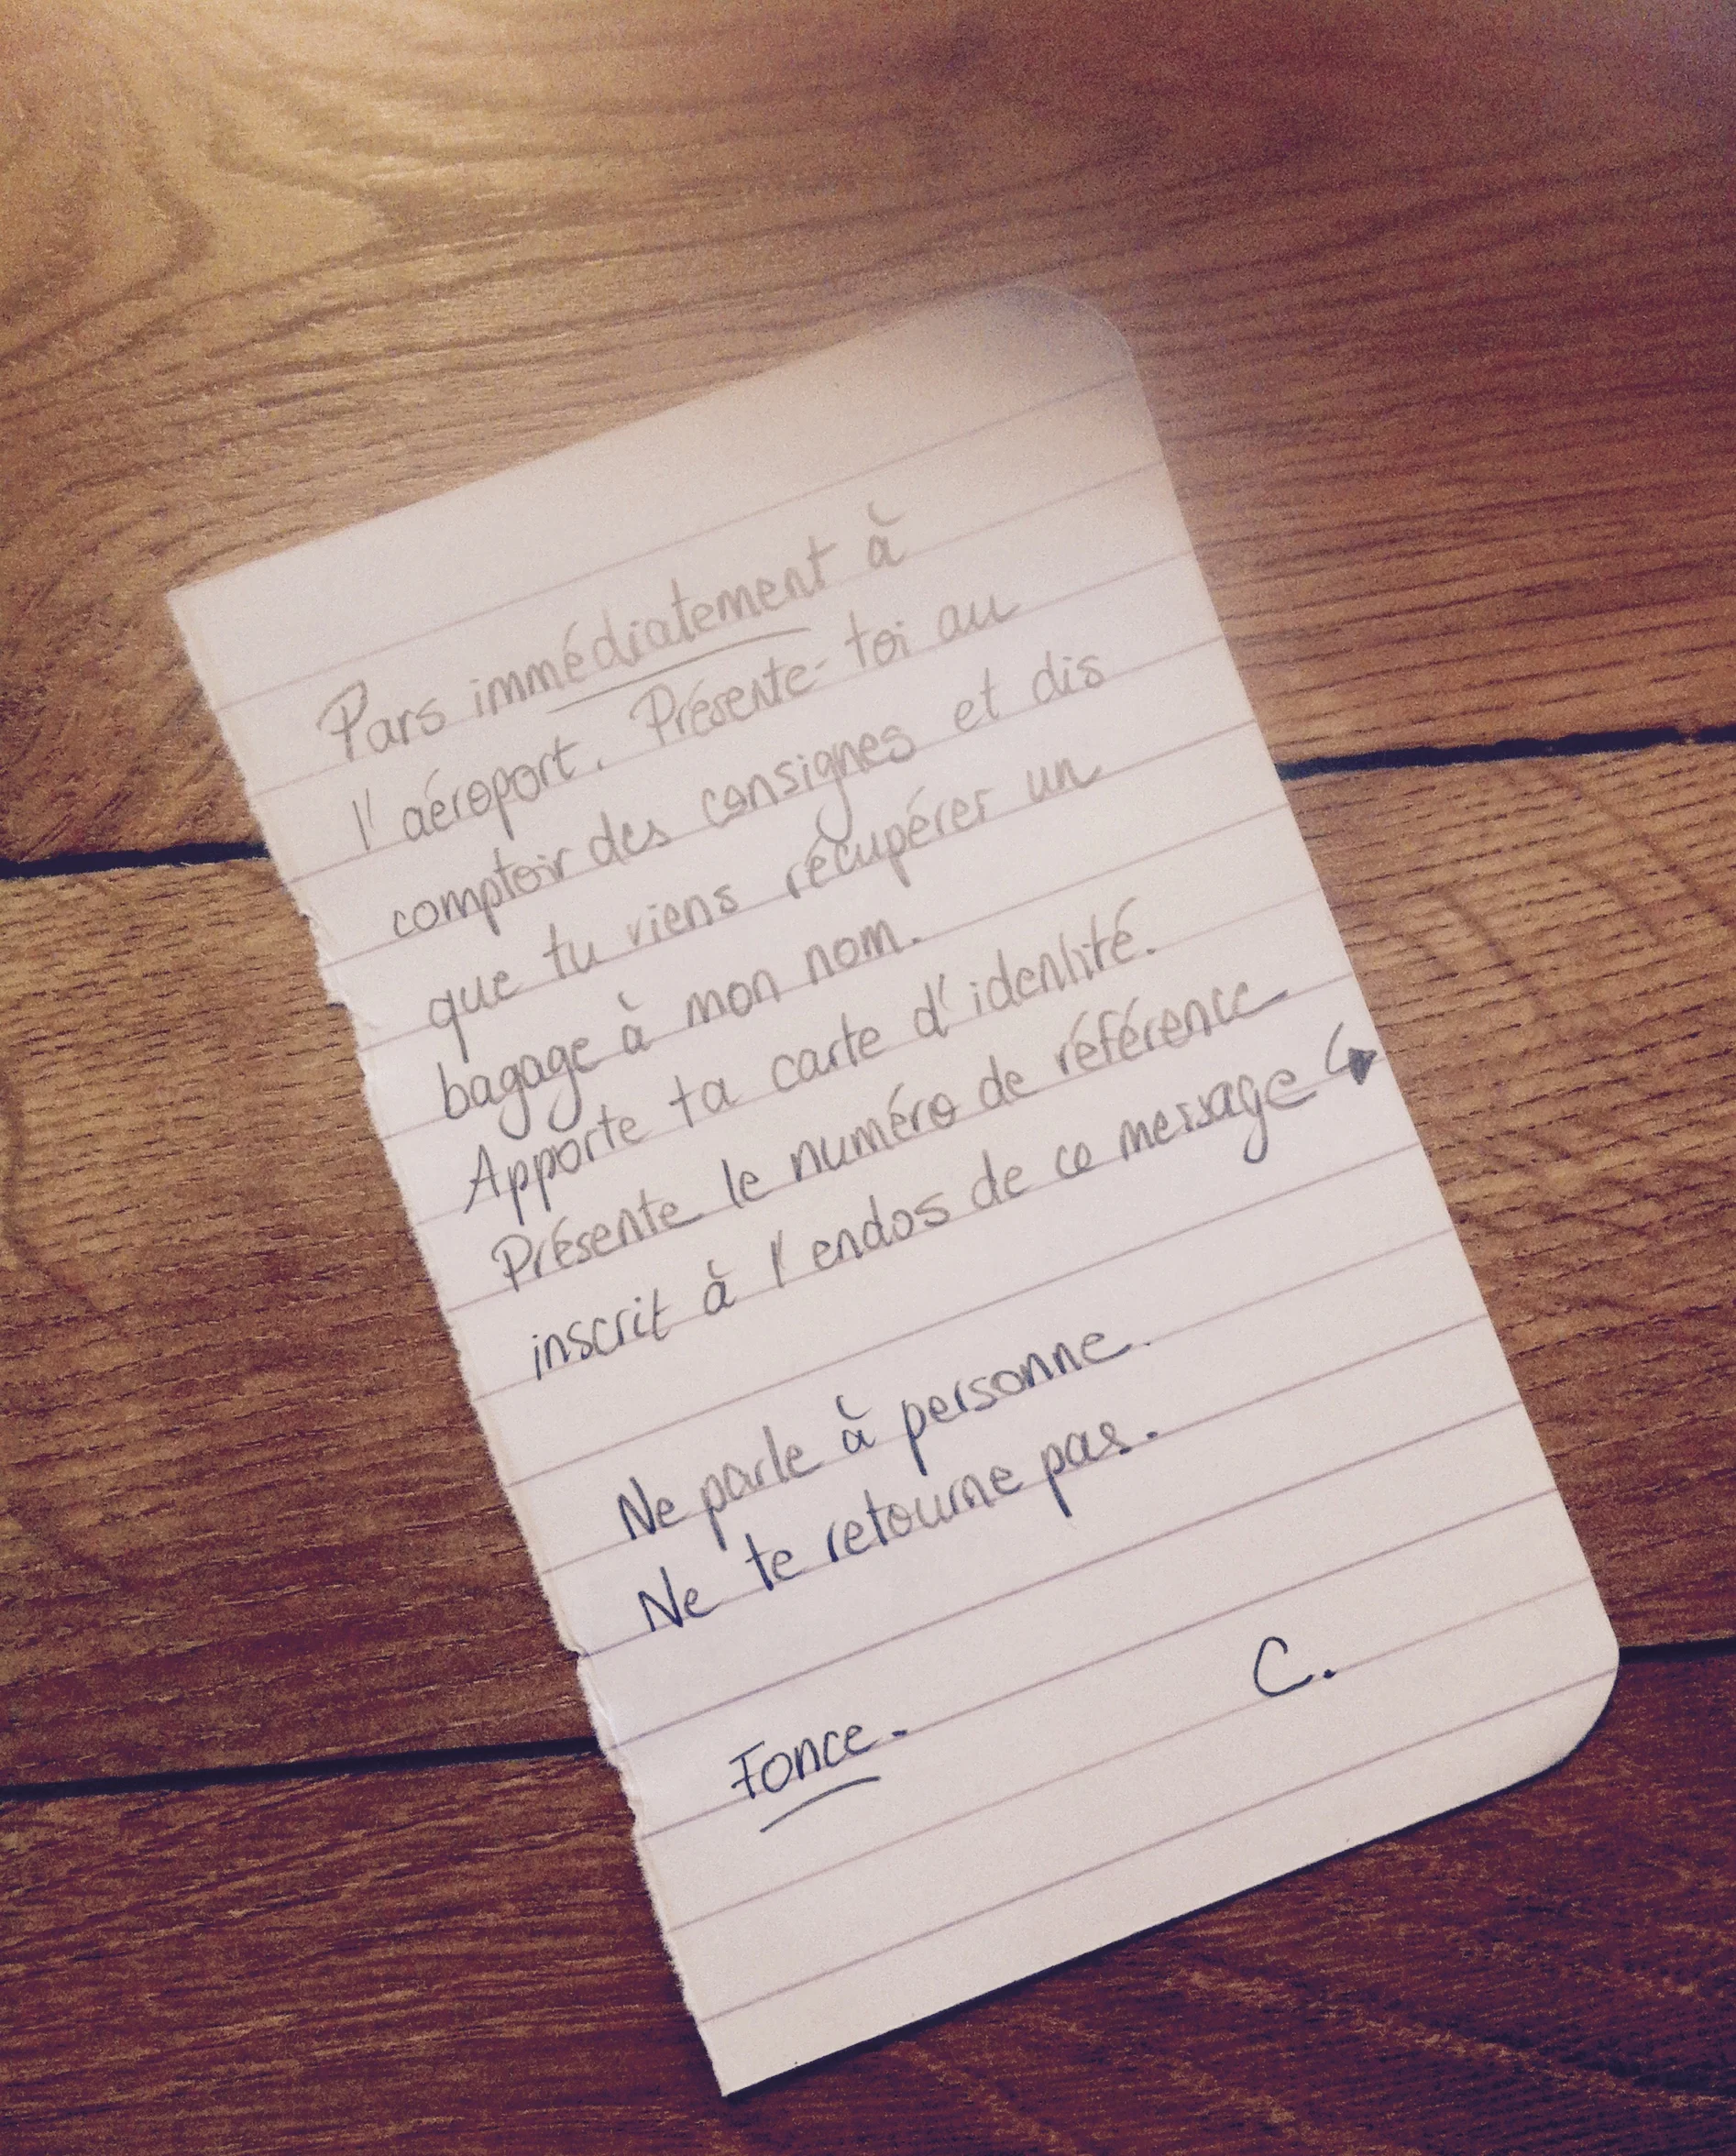 Pars immédiatement à
l'aéroport. Présente-toi au
comptoir des consignes et dis
que tu viens récupérer un
bagage à mon nom.
Apporte ta carte d'identité.
Présente le numéro de référence
inscrit à l'endos de ce message ↪
Ne parle à personne.
Ne te retourne pas.
C.
Fonce.